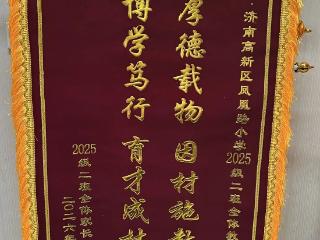 济南高新区凤凰路小学2025级二班全体教
厚德载物 因材施教
博学笃行 育才成林
2025级二班全体家长
二〇二六年